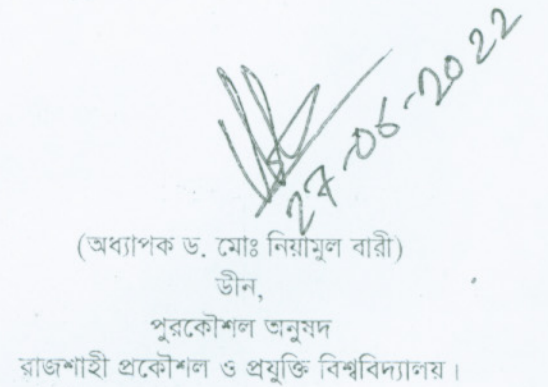 27-06-2022
(অধ্যাপক ড. মোঃ নিয়ামুল বারী)
ডীন,
পুরকৌশল অনুষদ
রাজশাহী প্রকৌশল ও প্রযুক্তি বিশ্ববিদ্যালয়।